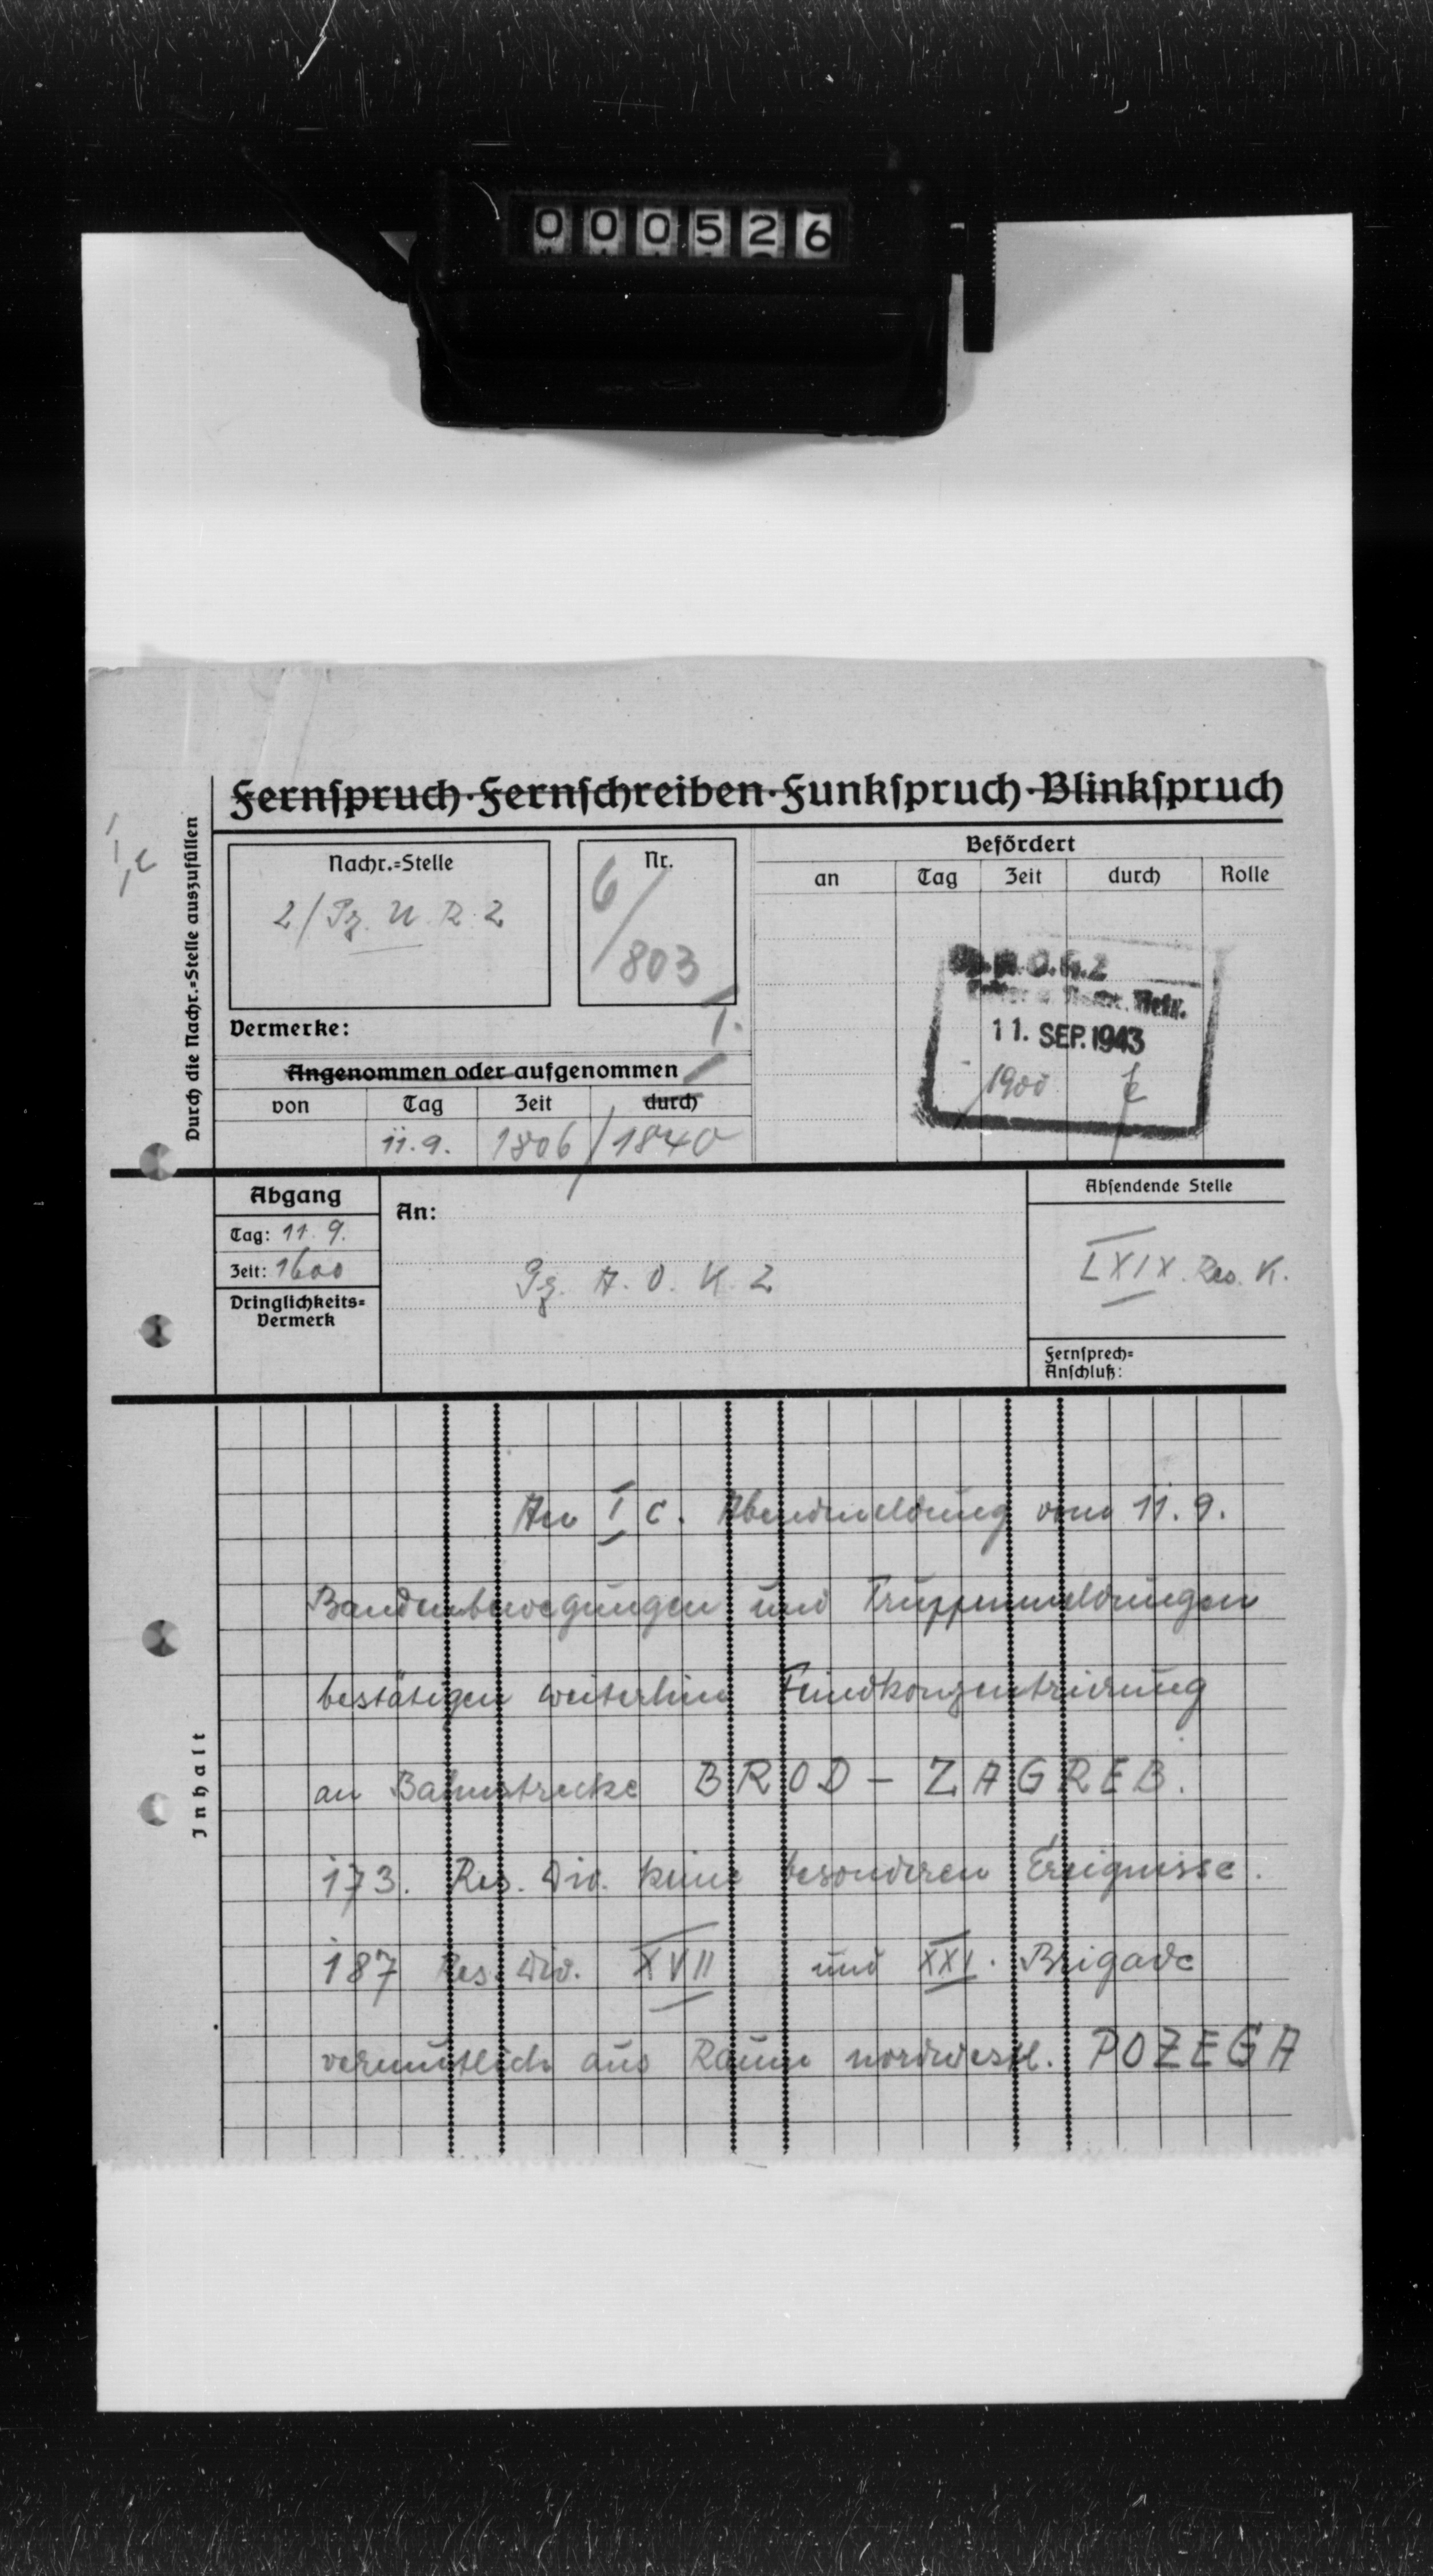 000526
Fernspruch·Fernschreiben·Funkspruch·Blinkspruch
Durch die Nachr.=Stelle auszufüllen
I c
Nachr.=Stelle
2/Pz. N. R. 2
Nr.
6/803
Befördert
an Tag Zeit durch Rolle
Vermerke:
Angenommen oder aufgenommen
von Tag Zeit durch
11.9. 1806/1840
11. SEP. 1943
1900
Abgang
Tag: 11. 9.
Zeit: 1600
Dringlichkeits=
Vermerk
An:
Pz. A. O. K. 2
Absendende Stelle
LXIX. Res. K.
Fernsprech=
Anschluß:
Inhalt
An I c. Abendmeldung vom 11. 9.
Bandenbewegungen und Truppenmeldungen
bestätigen weiterhin Feindkonzentrierung
an Bahnstrecke BROD - ZAGREB.
173. Res. Div. keine besonderen Ereignisse.
187 Res. Div. XVII und XXI. Brigade
vermutlich aus Raum nordwestl. POZEGA